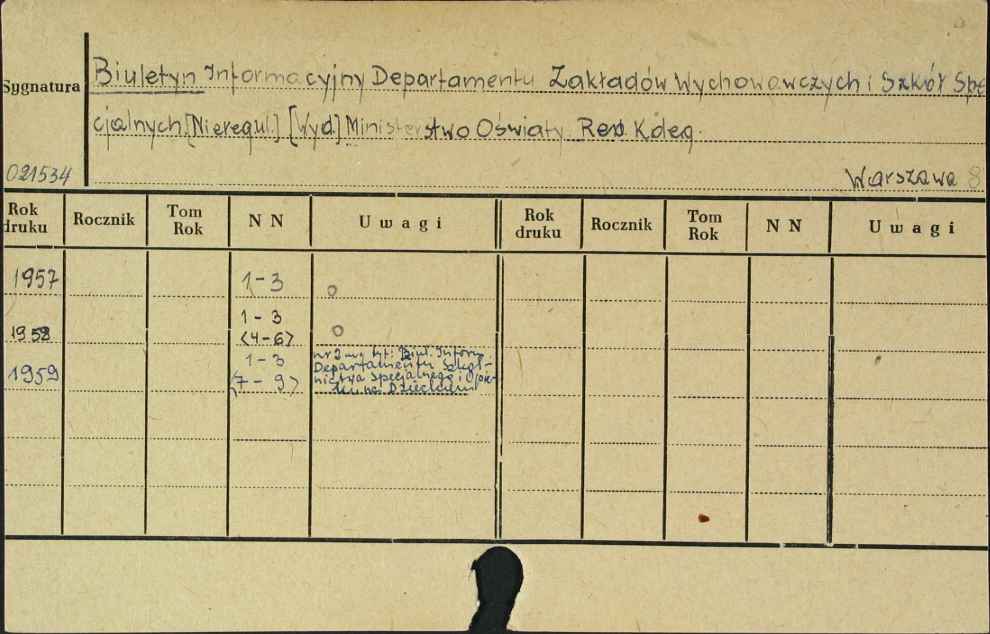 Sygnatura
Biuletyn Informacyjny Departamentu Zakładów Wychowawczych i Szkół Spe
cjalnych. [Nieregul.] [Wyd.] Ministerstwo Oświaty. Red. Koleg.
021534 Warszawa 8
Rok druku Rocznik Tom Rok N N Uwagi Rok druku Rocznik Tom Rok N N Uwagi
1957 1-3 o
1958 1-3 o
<4-6>
1959 1-3
<7-9>
nr 2 my tyt: Biul. Inform.
Departamentu Szkol-
nictwa specjalnego i opie-
ki na Dzieckiem